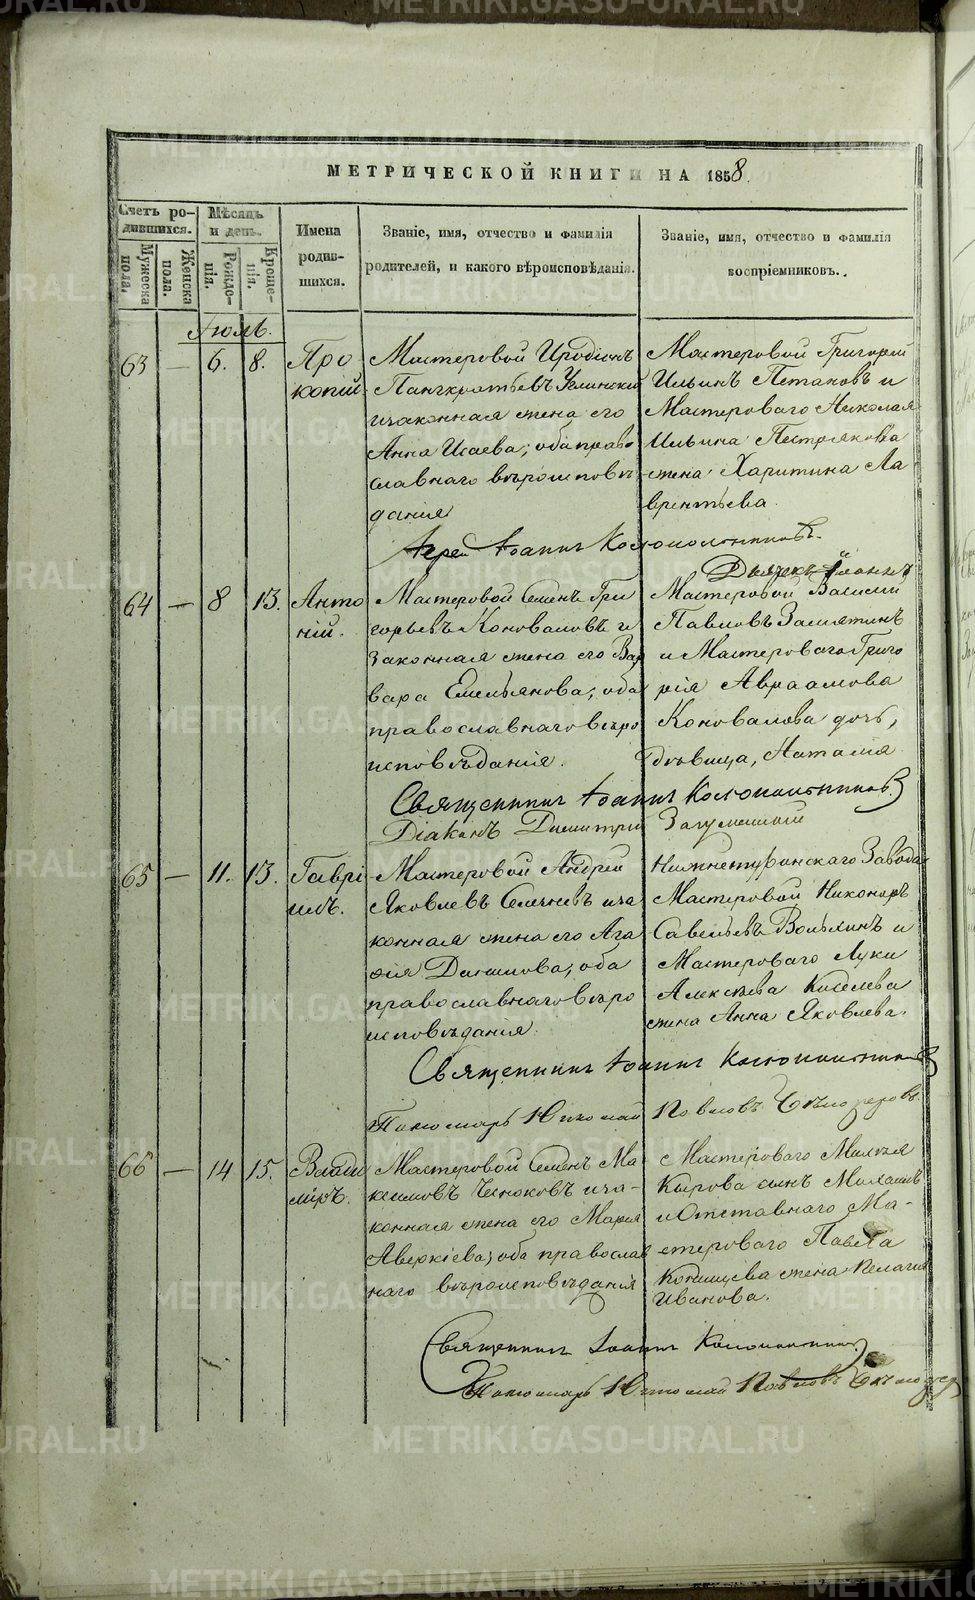 МЕТРИЧЕСКОЙ КНИГИ НА 1858.
Счетъ родившихся.
Мужеска пола.
Женска пола.
Мѣсяцъ и день.
Рожденія.
Крещенія.
Имена родившихся.
Званіе, имя, отчество и фамилія родителей, и какого вѣроисповѣданія.
Званіе, имя, отчество и фамилія воспріемниковъ.
Іюль.
63 — 6. 8.
Про
копій
Мастеровой Иродіонъ
Панкратьевъ
и законная жена его
Анна Исаева; оба право
славнаго вѣроисповѣ
данія
Мастеровой Григорій
Ильинъ и
Мастероваго Николая
Ильина Пестрякова
жена Харитина Ла
врентьева.
Іерей Іоаннъ
Дьячекъ Іоаннъ
64 — 8 13.
Анто
ній.
Мастеровой Семенъ Гри
горьевъ Коноваловъ и
законная жена его Вар
вара Емельянова; оба
православнаго вѣро
исповѣданія.
Мастеровой Василій
Павловъ Замятинъ
и Мастероваго Григо
рія Авраамова
Коновалова дочь,
дѣвица, Наталія
Священникъ Іоаннъ
Діаконъ Димитрій
65 — 11. 13.
Гаврі
илъ.
Мастеровой Андрей
Яковлевъ и за
конная жена его Ага
фія Данилова; оба
православнаго вѣро
исповѣданія.
Нижнетуринскаго Завода
Мастеровой Никоноръ
Савельевъ и
Мастероваго Луки
Алексѣева Киселева
жена Анна Яковлева.
Священникъ Іоаннъ
Пономарь Николай Павловъ
66 — 14 15.
Влади
міръ.
Мастеровой Семенъ Ма
ксимовъ Чесноковъ и за-
конная жена его Марія
Аверкіева; оба православ
наго вѣроисповѣданія
Мастероваго
Кирова сынъ Михаилъ
и Отставнаго Ма-
стероваго Павла
жена Пелагія
Иванова.
Священникъ Іоаннъ
Пономарь Николай Павловъ
METRIKI.GASO-URAL.RU